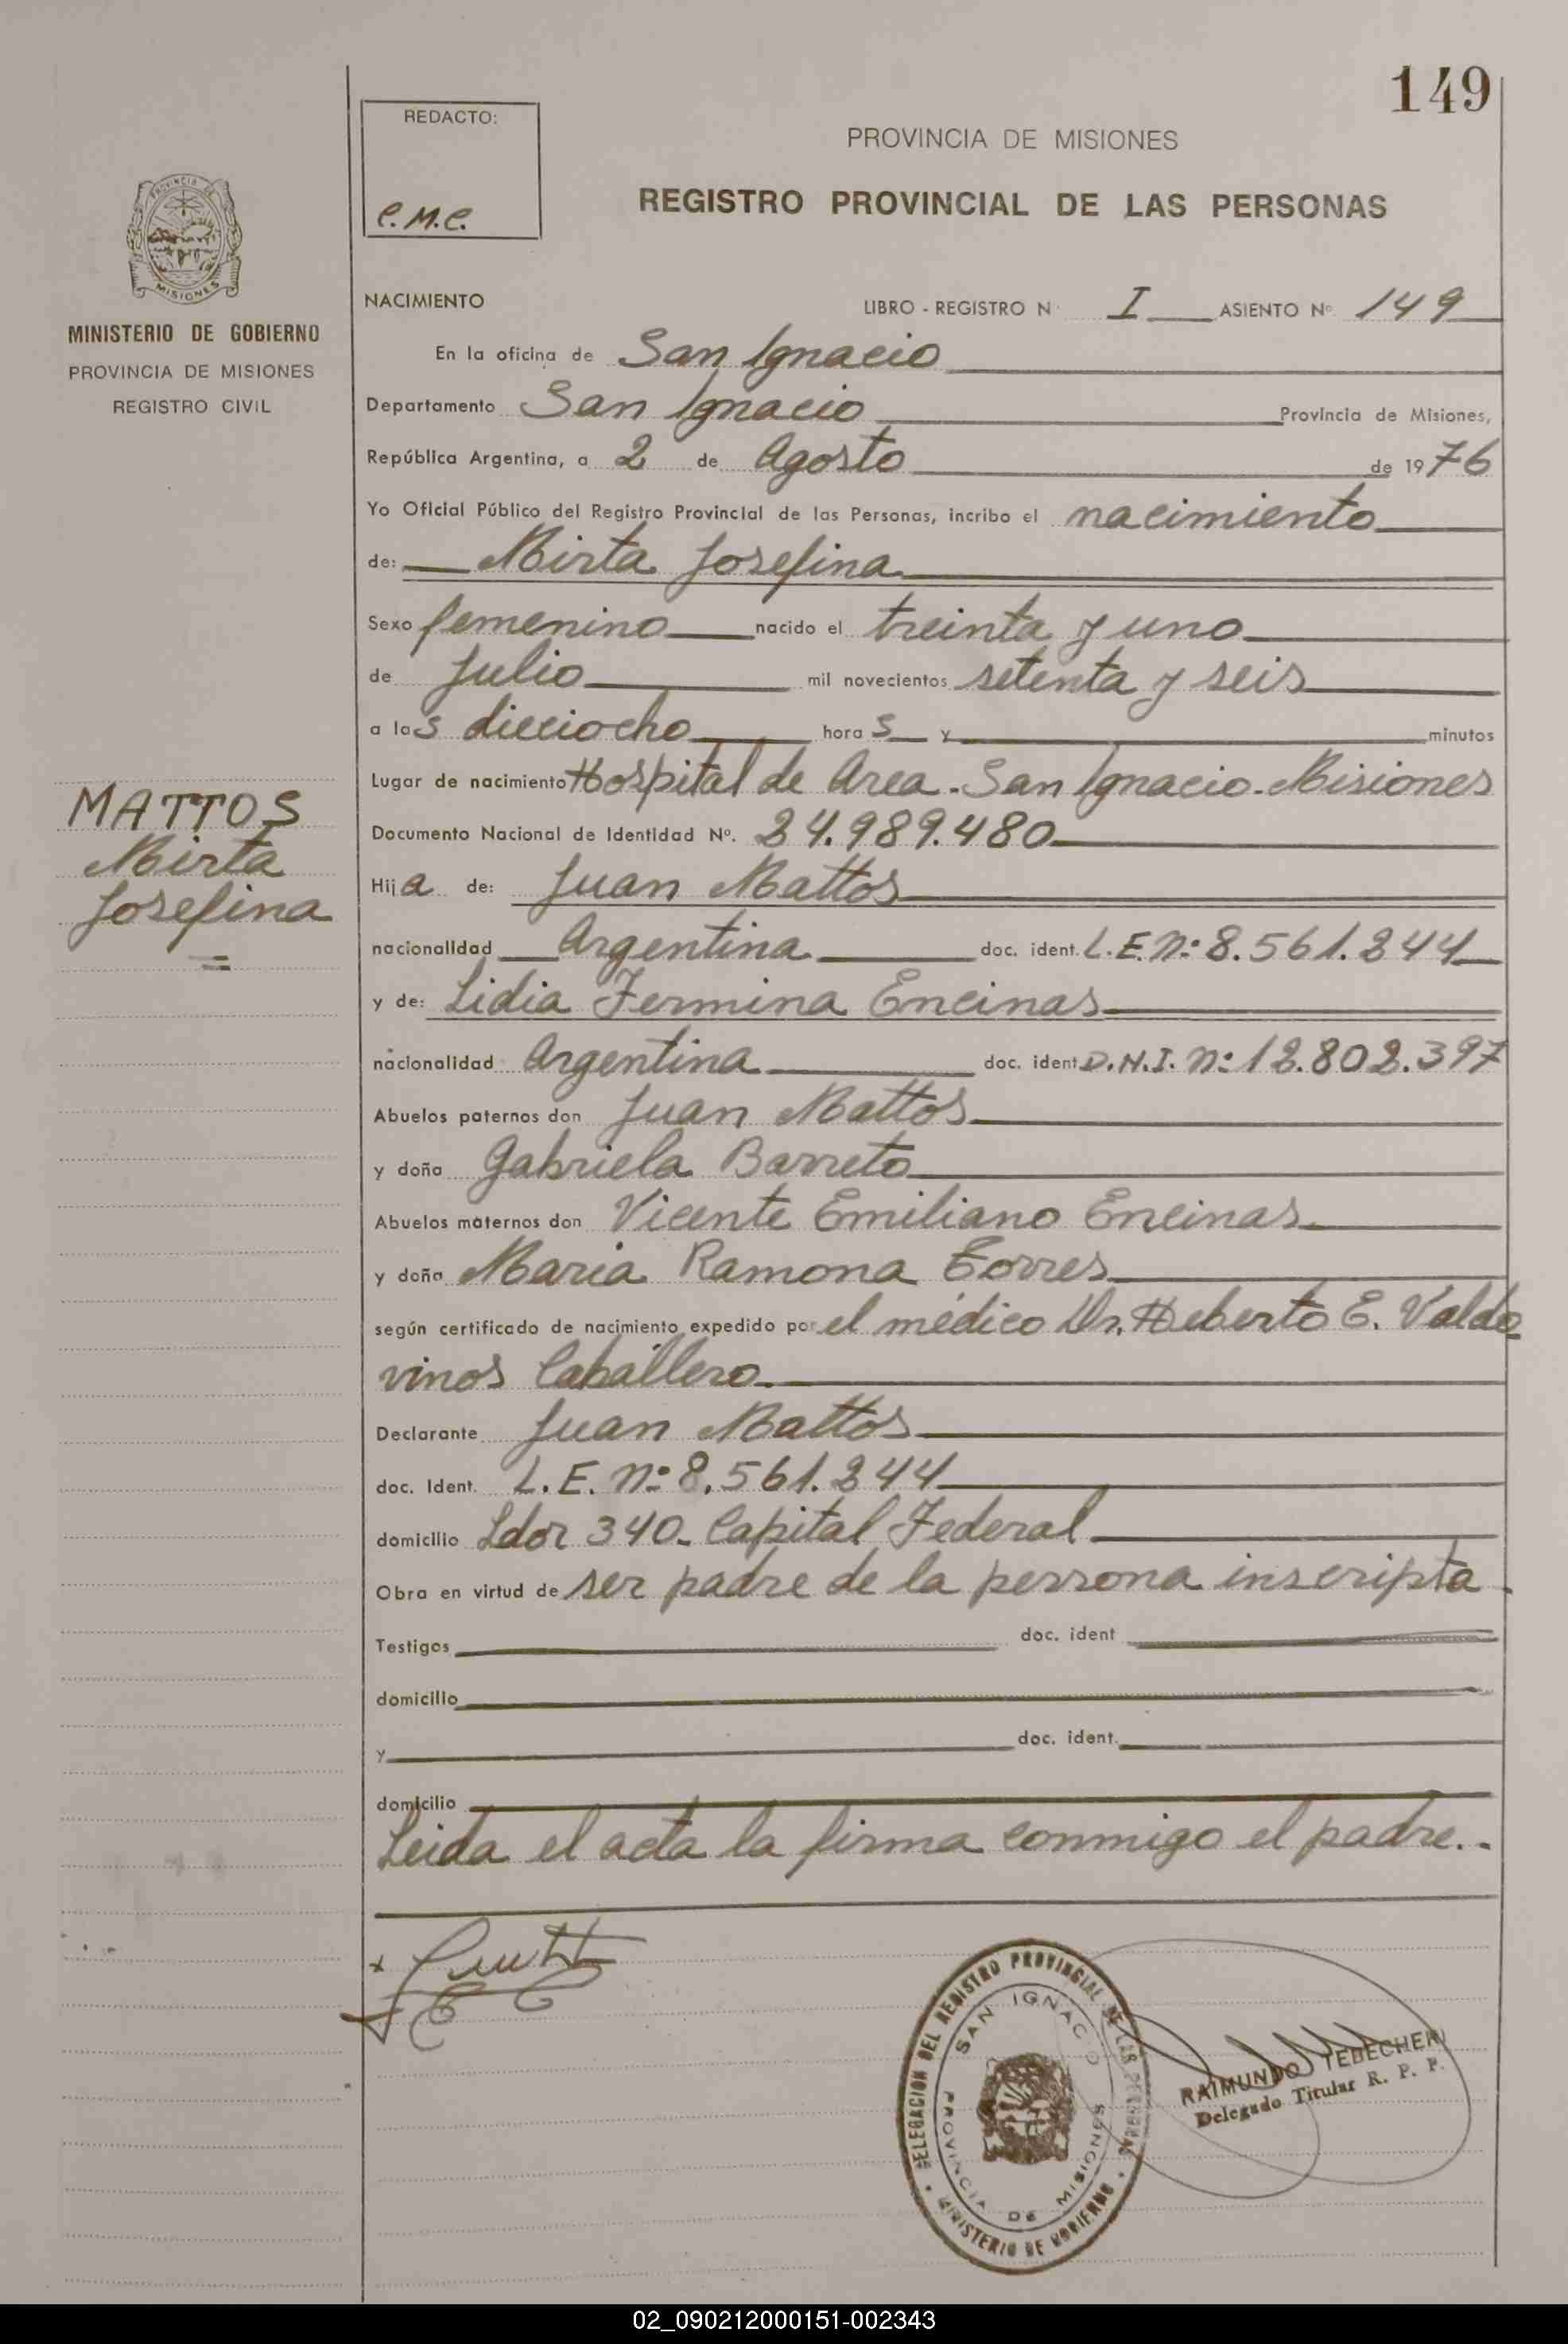 149
REDACTO:
C.M.C.
PROVINCIA DE MISIONES
REGISTRO PROVINCIAL DE LAS PERSONAS
PROVINCIA DE
MISIONES
MINISTERIO DE GOBIERNO
PROVINCIA DE MISIONES
REGISTRO CIVIL
NACIMIENTO LIBRO - REGISTRO N° I ASIENTO N° 149
En la oficina de San Ignacio
Departamento San Ignacio Provincia de Misiones,
República Argentina, a 2 de Agosto de 1976
Yo Oficial Público del Registro Provincial de las Personas, incribo el nacimiento
de: Mirta Josefina
Sexo femenino nacido el treinta y uno
de Julio mil novecientos setenta y seis
a las dieciocho horas y minutos
Lugar de nacimiento Hospital de Area - San Ignacio - Misiones
MATTOS
Mirta
Josefina
Documento Nacional de Identidad N°. 24.989.480
Hija de: Juan Mattos
nacionalidad Argentina doc. ident. L.E. N°: 8.561.244
y de: Lidia Fermina Encinas
nacionalidad Argentina doc. ident D.N.I. N°: 12.802.397
Abuelos paternos don Juan Mattos
y doña Gabriela Barreto
Abuelos maternos don Vicente Emiliano Encinas
y doña Maria Ramona Torres
según certificado de nacimiento expedido por el médico Dr. Heberto E. Valdo
vinos Caballero
Declarante Juan Mattos
doc. Ident. L.E. N°: 8.561.244
domicilio Ldor 340 - Capital Federal
Obra en virtud de ser padre de la persona inscripta.
Testigos doc. ident
domicilio
y doc. ident.
domicilio
Leida el acta la firma conmigo el padre. -
DELEGACION DEL REGISTRO PROVINCIAL DE LAS PERSONAS
SAN IGNACIO
PROVINCIA DE MISIONES
MINISTERIO DE GOBIERNO
RAIMUNDO TEDECHERI
Delegado Titular R. P. P.
02_090212000151-002343